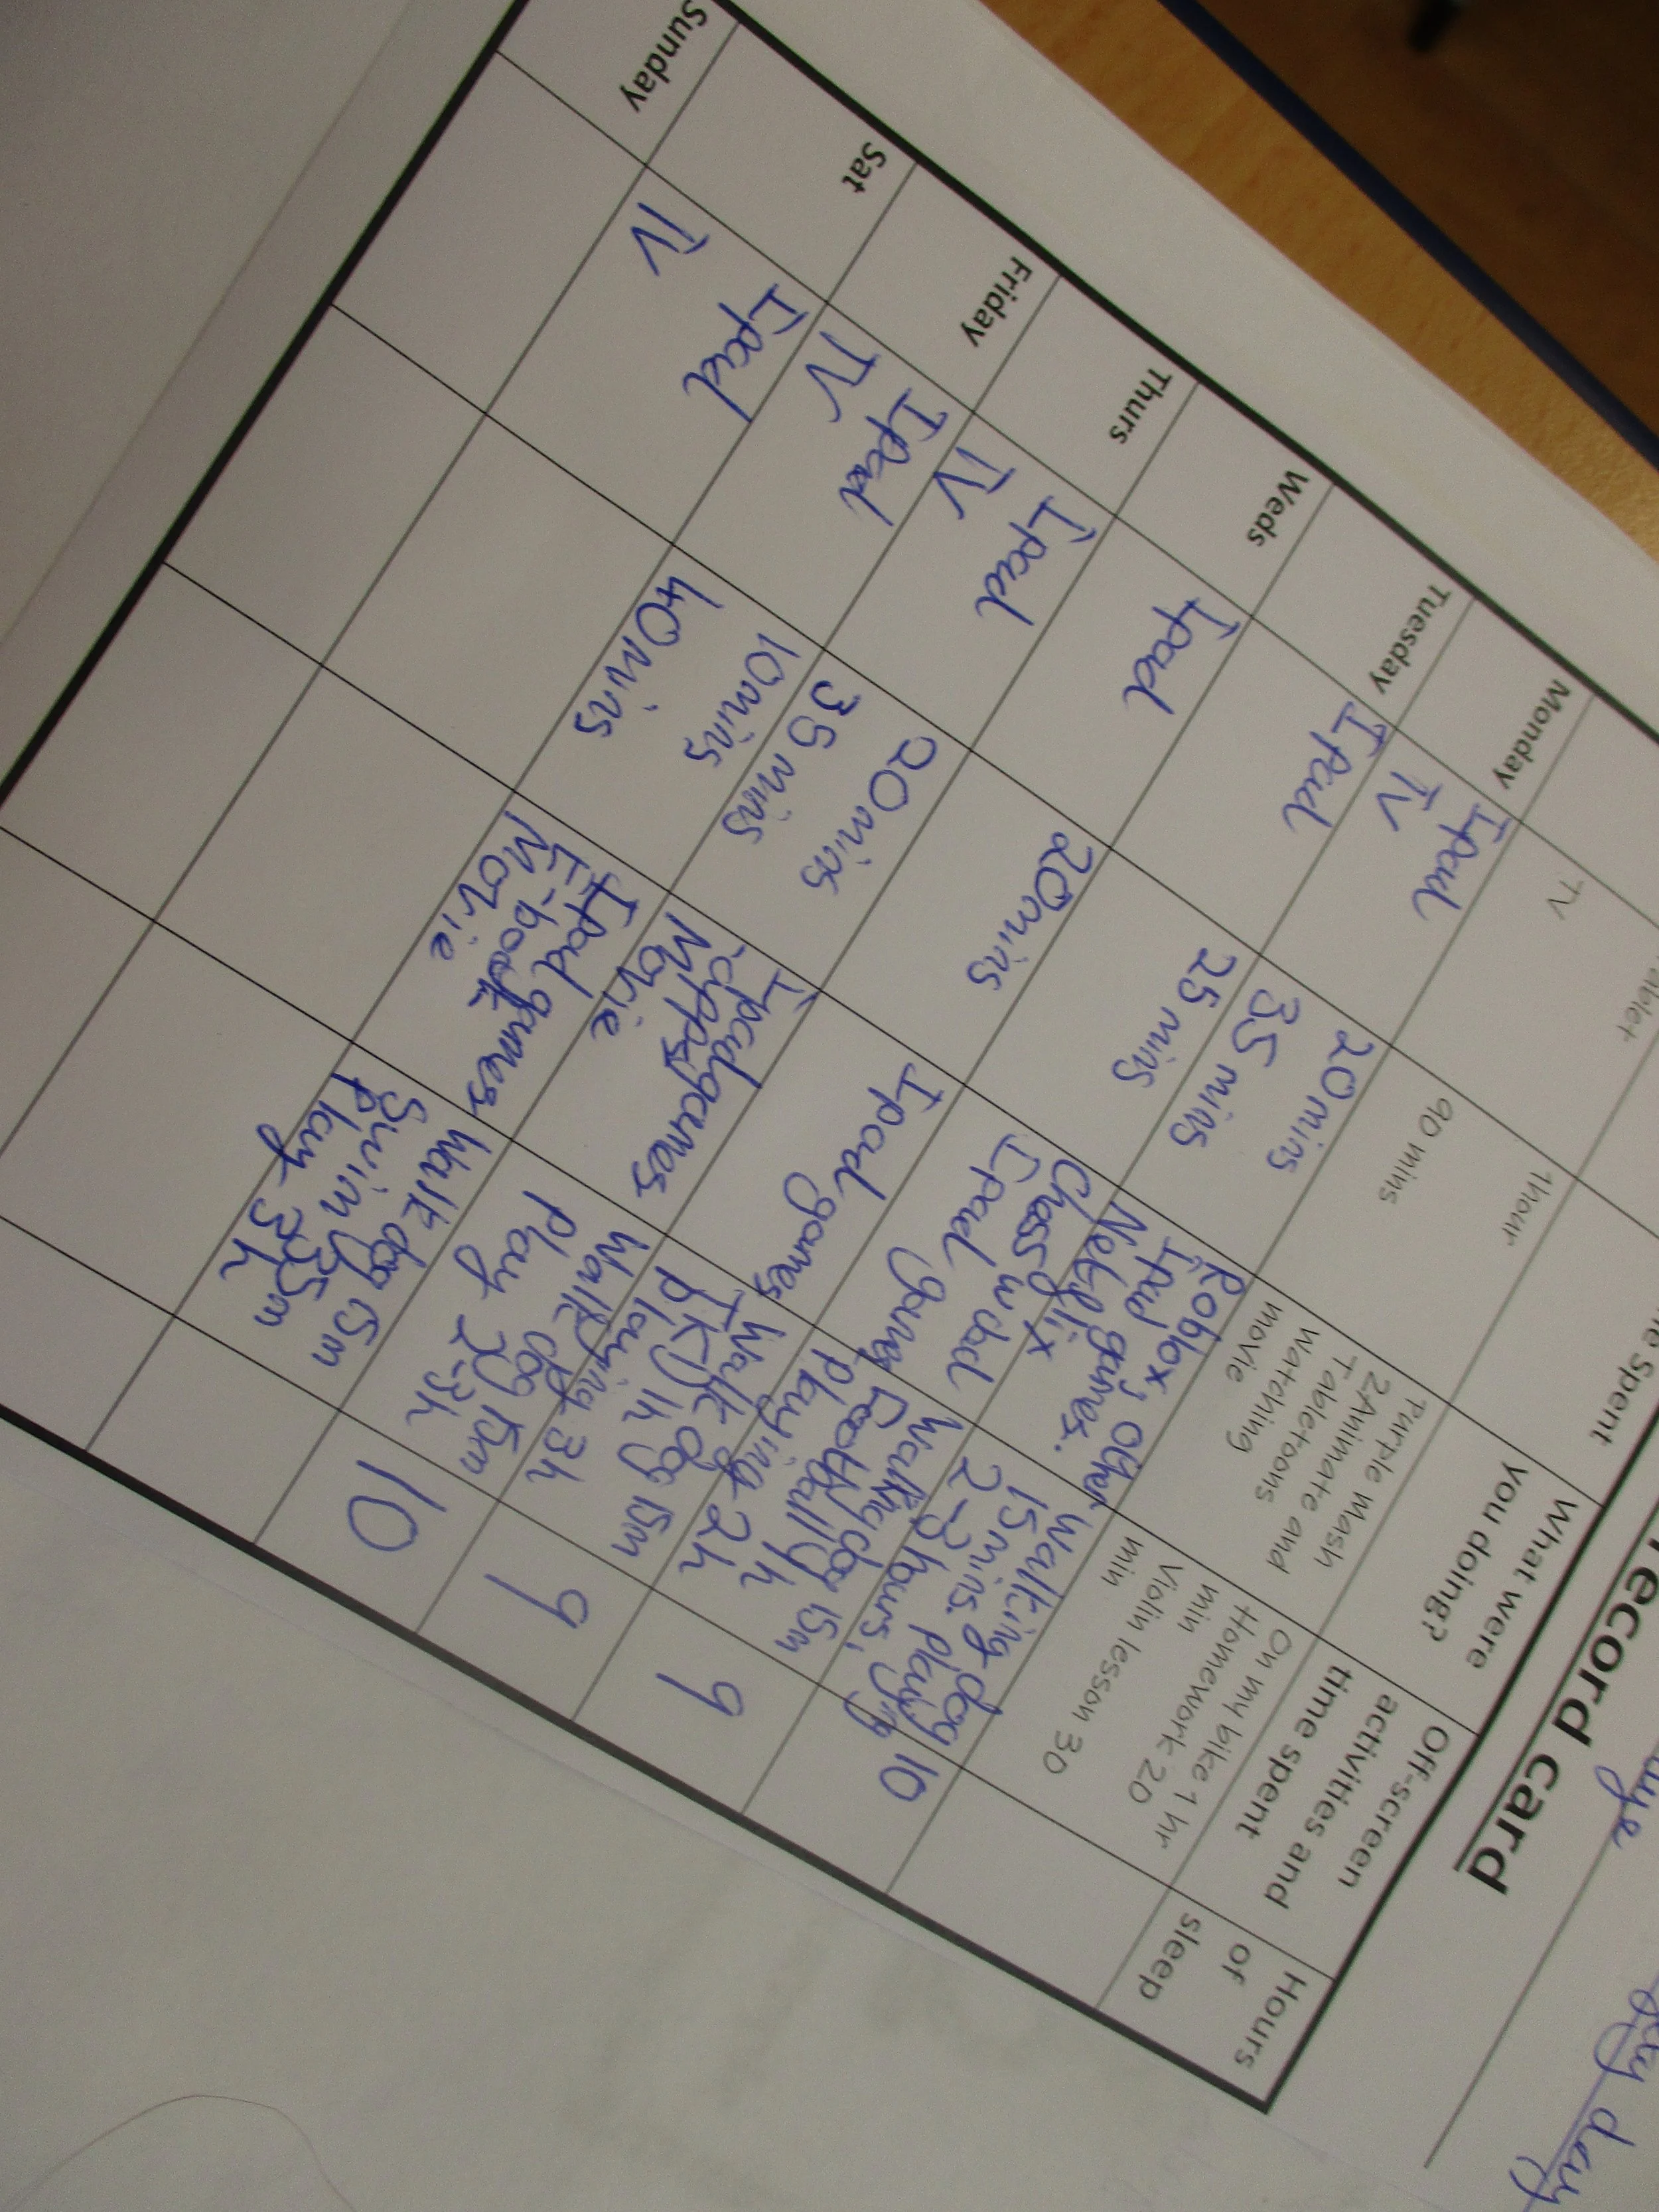 Record card
What were
you doing?
Off-screen
activities and
time spent
Hours
of
sleep
TV
90 mins
1hour
Purple Mash
2Animate and
Tabletoons
watching
movie
On my bike 1 hr
min
Homework 20
Violin lesson 30
min
Monday
Ipad
TV
20 mins
35 mins
Roblox, other
Ipad games.
Netflix
Walking dog
15mins. playing
2-3 hours,
10
Tuesday
Ipad
25 mins
Ipad
Walking dog 15m
Football 1h
playing 2h
Weds
Ipad
20mins
Ipad games
Walk dog 15m
1h
playing 3h
9
Thurs
Ipad
TV
20 mins
35 mins
Ipad games
Movie
Walk dog 15m
Play 2-3h
9
Friday
Ipad
TV
10 mins
40 mins
Ipad games
E-book
Movie
Walk dog 15m
Swim 35m
play 3h
10
Sat
Ipad
TV
Sunday
day